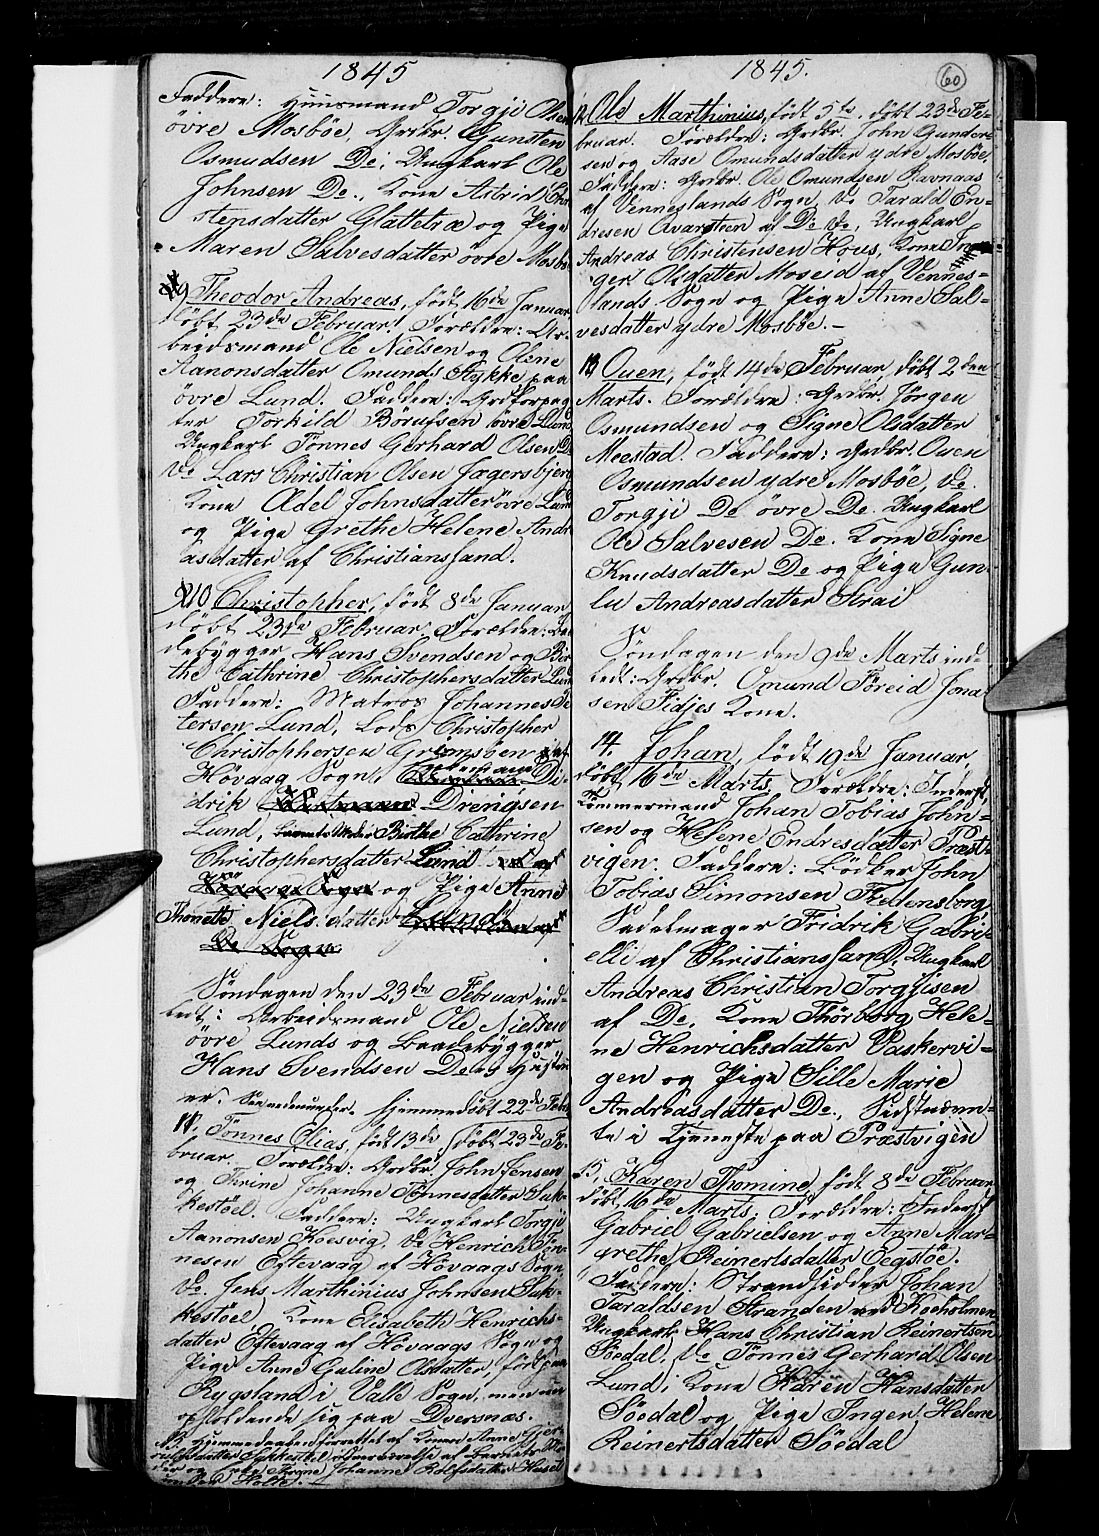 1845
Faddere: Huusmand Torgji Olsen
øvre Mosbøe, Grdbr. Gunsten
Osmudsen Do. Ungkarl Ole
Johnsen Do., Kone Astrid Chri
stensdatter Glattetræ og Pige
Maren Salvesdatter øvre Mosbø
9 Theodor Andreas, født 16de Januar
døbt 23de Februar. Forældre: Ar-
beidsmand Ole Nielsen og Olene
Aanonsdatter Omunds Stykke paa
øvre Lund. Faddere: Grdforpag
ter Torkild Børufsen øvre Lund
Ungkarl Tønnes Gerhard Olsen Do
do Lars Christian Olsen Jægersbjerg
Kone Adel Johnsdatter øvre Lund
og Pige Grethe Helene Andre
asdatter af Christianssand.
10 Christopher, født 8de Januar
døbt 23de Februar. Forældre: Baa
debygger Hans Svendsen og Bir
the Cathrine Christophersdatter Lund
Faddere: Matros Johannes Pe
tersen Lund, Lods Christopher
Christophersen Grimsøen af
Høvaag Sogn, Di
drik Drengsen
Lund, Birthe Cathrine
Christophersdatter Lund
og Pige Anne
Thonette Niels. datter
Do Sogn
Søndagen den 23de Februar ind-
ledt: Arbeidsmand Ole Nielsen
øvre Lunds og Baadebygger
Hans Svendsen Des Hustru
er. hjemmedøbt 22de Febr
11. Tønnes Elias, født 13de, døbt 23de Fe-
bruar. Forældre: Grdbr. John Jensen
og Thrine Johanne Tønnesdatter Suk-
kestøel. Faddere: Ungkarl Torgji
Aanonsen Koesvig, do Henrich Tøn-
nesen Eftevaag af Høvaags Sogn
do. Jens Marthinius Johnsen Suk-
kestøel, Kone Elisabeth Henrichs-
datter Eftevaag af Høvaags Sogn og
Pige Anne Guline Olsdatter, født paa
Rygsland i Valle Sogn, men nu
opholdende sig paa Dversnæs.
NB. Hjemmedaaben forrettet af Konen Anne Gjer-
datter Sukkestøel
og Pige Johanne Rolfsdatter Huset
under Holte.
1845.
60
12 Ole Marthinius, født 5te, døbt 23de Fe-
bruar. Forældre: Grdbr. John Gunder-
sen og Aase Omundsdatter ydre Mosbøe,
Faddere: Grdbr. Ole Omundsen Ravnaas
af Venneslands Sogn, do Tarald En-
dresen Qvarsteen af Do do, Ungkarl
Andreas Christensen Hous, Kone In-
ger Olsdatter Moseid af Vennes-
lands Sogn og Pige Anne Sal-
vesdatter ydre Mosbøe. —
13 Ouen, født 14de Februar, døbt 2den
Marts. Forældre: Grdbr. Jørgen
Osmundsen og Signe Olsdatter
Meestad. Faddere: Grdbr. Ouen
Osmundsen ydre Mosbøe, do.
Torgji Do øvre Do. Ungkarl
Ole Salvesen Do. Kone Signe
Knudsdatter Do og Pige Gun-
lu Andreasdatter Strai
Søndagen den 9de Marts ind-
ledt: Grdbr. Omund Søreid Jona-
sen Fidjes Kone.
14. Johan, født 19de Januar,
døbt 16de Marts, Forældre: Inderst,
Tømmermand Johan Tobias John-
sen og Helene Endresdatter Præst-
vigen. Faddere: Bødker John
Tobias Simonsen Fredensborg
Sadelmager Fridrik Gabri-
elli af Christianssand, Ungkarl
Andreas Christian Torgjisen
af Do, Kone Thorborg Hele-
ne Henrichsdatter Vaskervi-
gen og Pige Sille Marie
Andreasdatter Do., Sidstnævn-
te i Tjeneste paa Præstvigen
15, Karen Thomine, født 8de Februar
døbt 16de Marts. Forældre: Inderst
Gabriel Gabrielsen og Anne Mar-
grethe Reinertsdatter Øegstøe.
Faddere: Strandsidder Johan
Taraldsen Stranden ved Koeholmen
Ungkarl Hans Christian Reinertsen
Søedal, do Tønnes Gerhard Olsen
Lund, Kone Karen Hansdatter
Søedal og Pige Inger Helene
Reinertsdatter Søedal